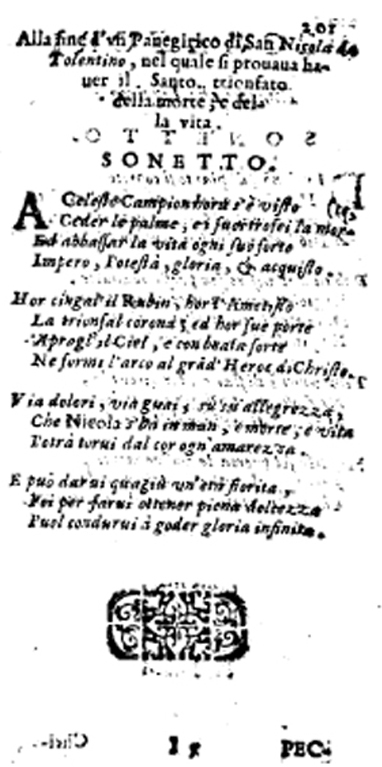 201
Alla fine d'vn Panegirico di San Nicola da
Tolentino, nel quale si prouaua ha-
uer il Santo trionfato
della morte, & del-
la vita.
SONETTO.
A Celeste Campion hora s'è visto
Ceder le palme, ei suoi trofei la mor-
Ed abbassar la vita ogni suo forte
Impero, Potestà, gloria, & acquisto.
Hor cingal' il Rubin, hor l'Ametisto
La trionfal corona; ed hor sue porte
Aprogl'il Ciel, e con beata sorte
Ne formi l'arco al grãd' Heroe di Christo.
Via dolori, via guai, sù sù allegrezza,
Che Nicola s'hà in man, e morte, e vita
Potrà torui dal cor ogn'amarezza.
E può darui quagiù un'età fiorita,
Poi per farui ottener piena dolcezza
Puol condurui à goder gloria infinita.
I 5
PEC-